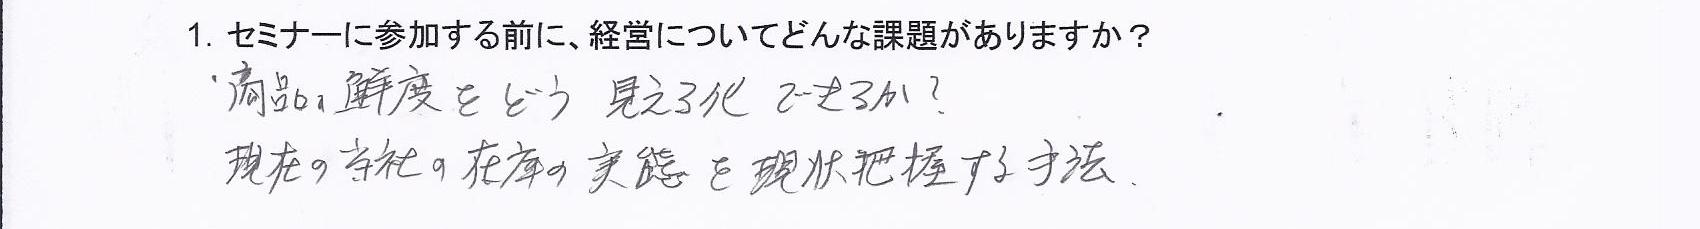 1. セミナーに参加する前に、経営についてどんな課題がありますか？
・商品の鮮度をどう見える化できるか？
現在の当社の在庫の実態を現状把握する手法.